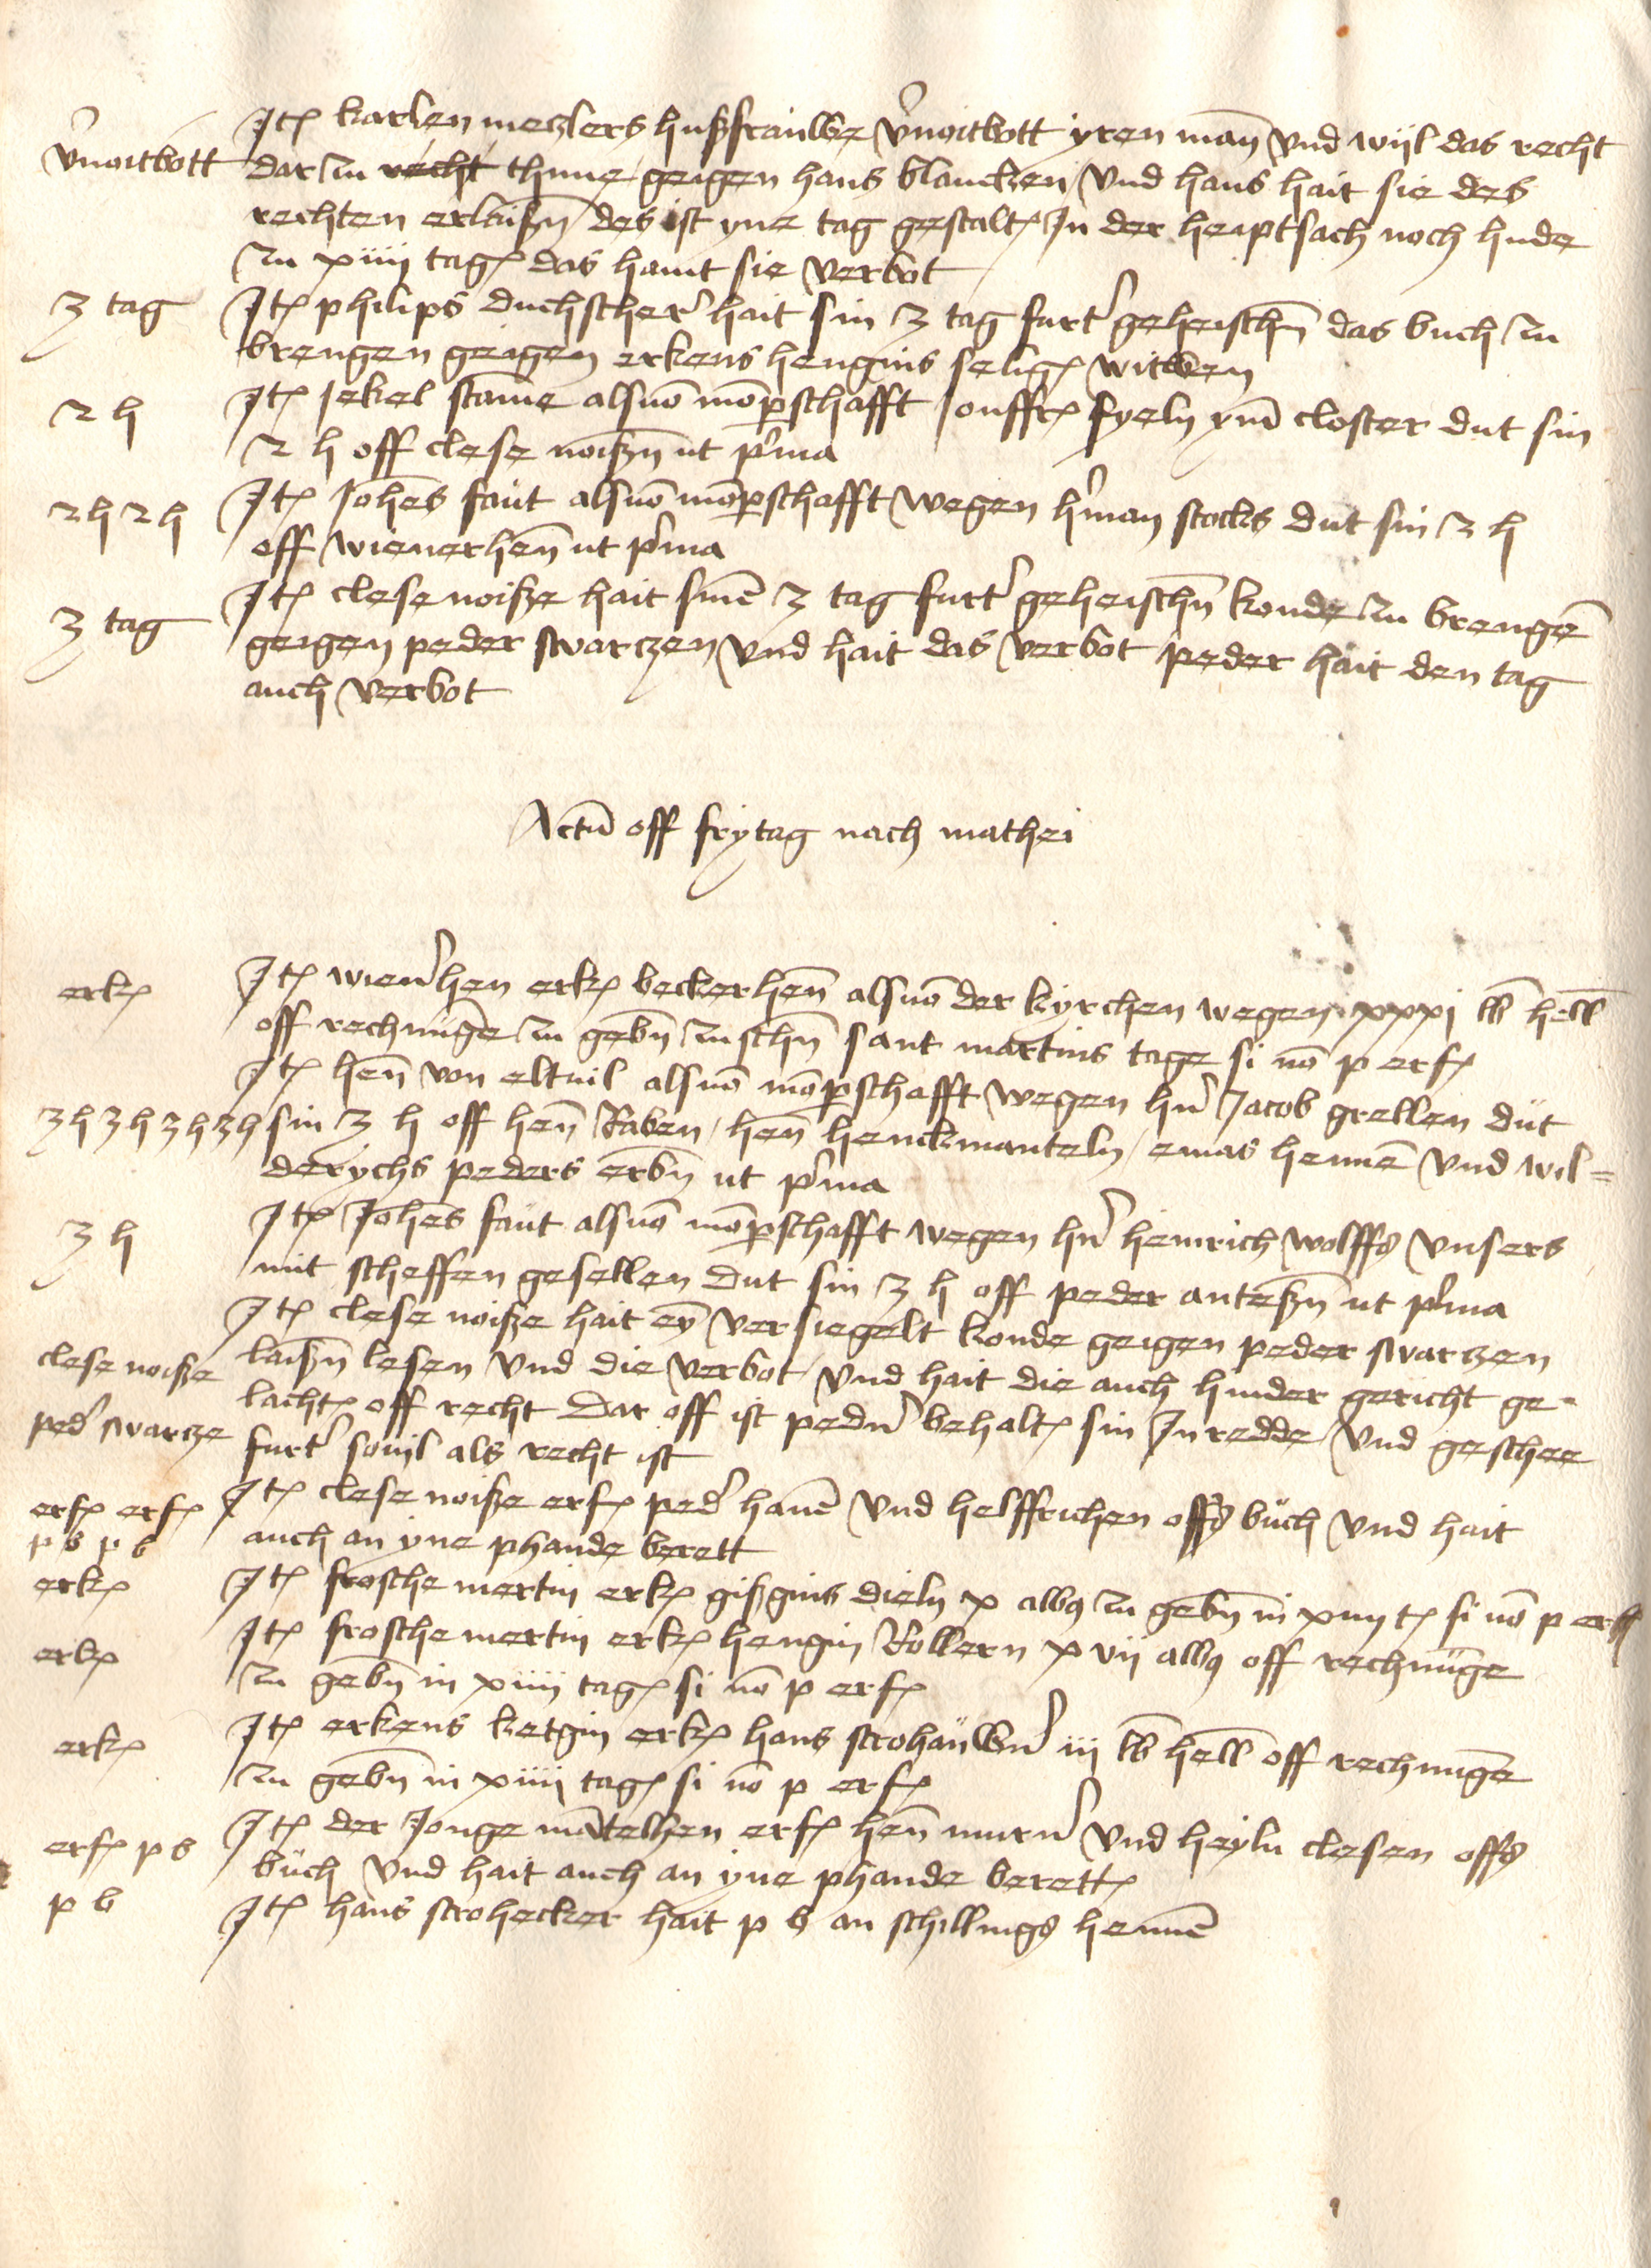 Itē karlen meczlers hußfrauwe v̾noitbott yren man̄ vnd wijl das recht
v̾noitbott dar zu recht thune geigen hans blancken vnd hans hait sie des
rechten erlaißn̄ des ist yne tag gestalt In der heiptsach noch hude
zu xiiij tagē das haint sie verbot
3 tag Itē philips duchscherē hait sin 3 tag furt̾ geheischn̄ das buch zu
brengen geigen erkens hengins seligē witwen
2 h Itē Jekel stame alsuō mōp̱schafft Jouffrē fyeln ym̄ closter dut sin
2 h off clese noißn̄ ut p̾ma
2 h 2 h Itē Joh̄es faut alsuō mōp̱schafft wegen h̾man stocks dut sin 2 h
off wienerhen̄ ut p̾ma
3 tag Itē clese noiße hait sinē 3 tag furt̾ geheischn̄ konde zu brengē
geigen peder swarczen vnd hait das verbot peder hait den tag
auch verbot
Actū off frytag nach mathei
erkē Itē wien̾hen erkē beckerhen̄ alsuō der kyrchen wegen xxxj lb hell
off rechnūge zu gebn̄ zuschn̄ sant martins tage si nō p erfē
Itē hen̄ von eltuil alsuō mōp̱schafft wegen hn̾ Jacob grellen dut
3 h 3 h 3 h 3 h sin 3 h off hen̄ Raben / hen̄ henckmanteln / emas hennē vnd wil=
derychs peders erbn̄ ut p̾ma
3 h Itē Joh̄es faut alsuō mōp̱schafft wegen hn̾ heinrich wolffs vnsers
mit scheffen gesellen dut sin 3 h off peder anteßn̄ ut p̾ma
Itē clese noiße hait eȳ versiegelt konde geigen peder swarczen
clese noiße laißn̄ lesen vnd die verbot / vnd hait die auch hinder gericht ge-
lachtē off recht Dar off ist pedn̾ behaltē sin Inredde vnd geschee
ped̾ swarcze furt̾ souil als recht ist
erfē erfē Itē clese noiße erfē ped̾ hanē vnd helffrichen offs buch vnd hait
p b p b auch an yne phande berett
erkē Itē frosche mertin erkē gißgins dieln x albꝯ zu gebn̄ in xiiij tē si nō p erfē
erkē Itē frosche mertin erkē hengin Rollern xvij albꝯ off rechnūge
zu gebn̄ in xiiij tagē si nō p erfē
erkē Itē erkens ketgin erkē hans strohauwn̾ iij lb hell off rechnūge
zu gebn̄ in xiiij tagē si nō p erfē
erfē p b Itē der Jonge mātelhen erfē hen̄ murn̾ vnd heyln clesen offs
buch vnd hait auch an yne phande berettē
p b Itē hans strohecker hait p b an schillings hennē